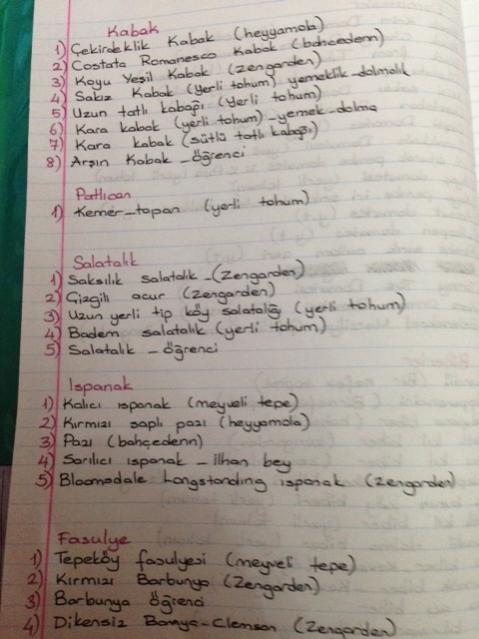 Kabak
1) Çekirdeklik Kabak (heyyamola)
2) Costata Romanesco Kabak (bahçedenn)
3) Koyu Yeşil Kabak (Zengarden)
4) Sakız Kabak (yerli tohum) yemeklik-dolmalık
5) Uzun tatlı kabağı (Yerli tohum)
6) Kara kabak (yerli tohum)-yemek-dolma
7) Kara kabak (sütlü tatlı kabağı)
8) Arşın Kabak - öğrenci
Patlıcan
1) Kemer-topan (yerli tohum)
Salatalık
1) Saksılık salatalık-(Zengarden)
2) Çizgili acur (Zengarden)
3) Uzun yerli tip köy salatalığı (yerli tohum)
4) Badem salatalık (yerli tohum)
5) Salatalık - öğrenci
Ispanak
1) Kalıcı ıspanak (meyveli tepe)
2) Kırmızı saplı pazı (heyyamola)
3) Pazı (bahçedenn)
4) Sarılıcı ıspanak - ilhan bey
5) Bloomsdale Longstanding ıspanak (Zengarden)
Fasulye
1) Tepeköy fasulyesi (meyveli tepe)
2) Kırmızı Barbunya (Zengarden)
3) Barbunya öğrenci
4) Dikensiz Bamya-Clemson (Zengarden)